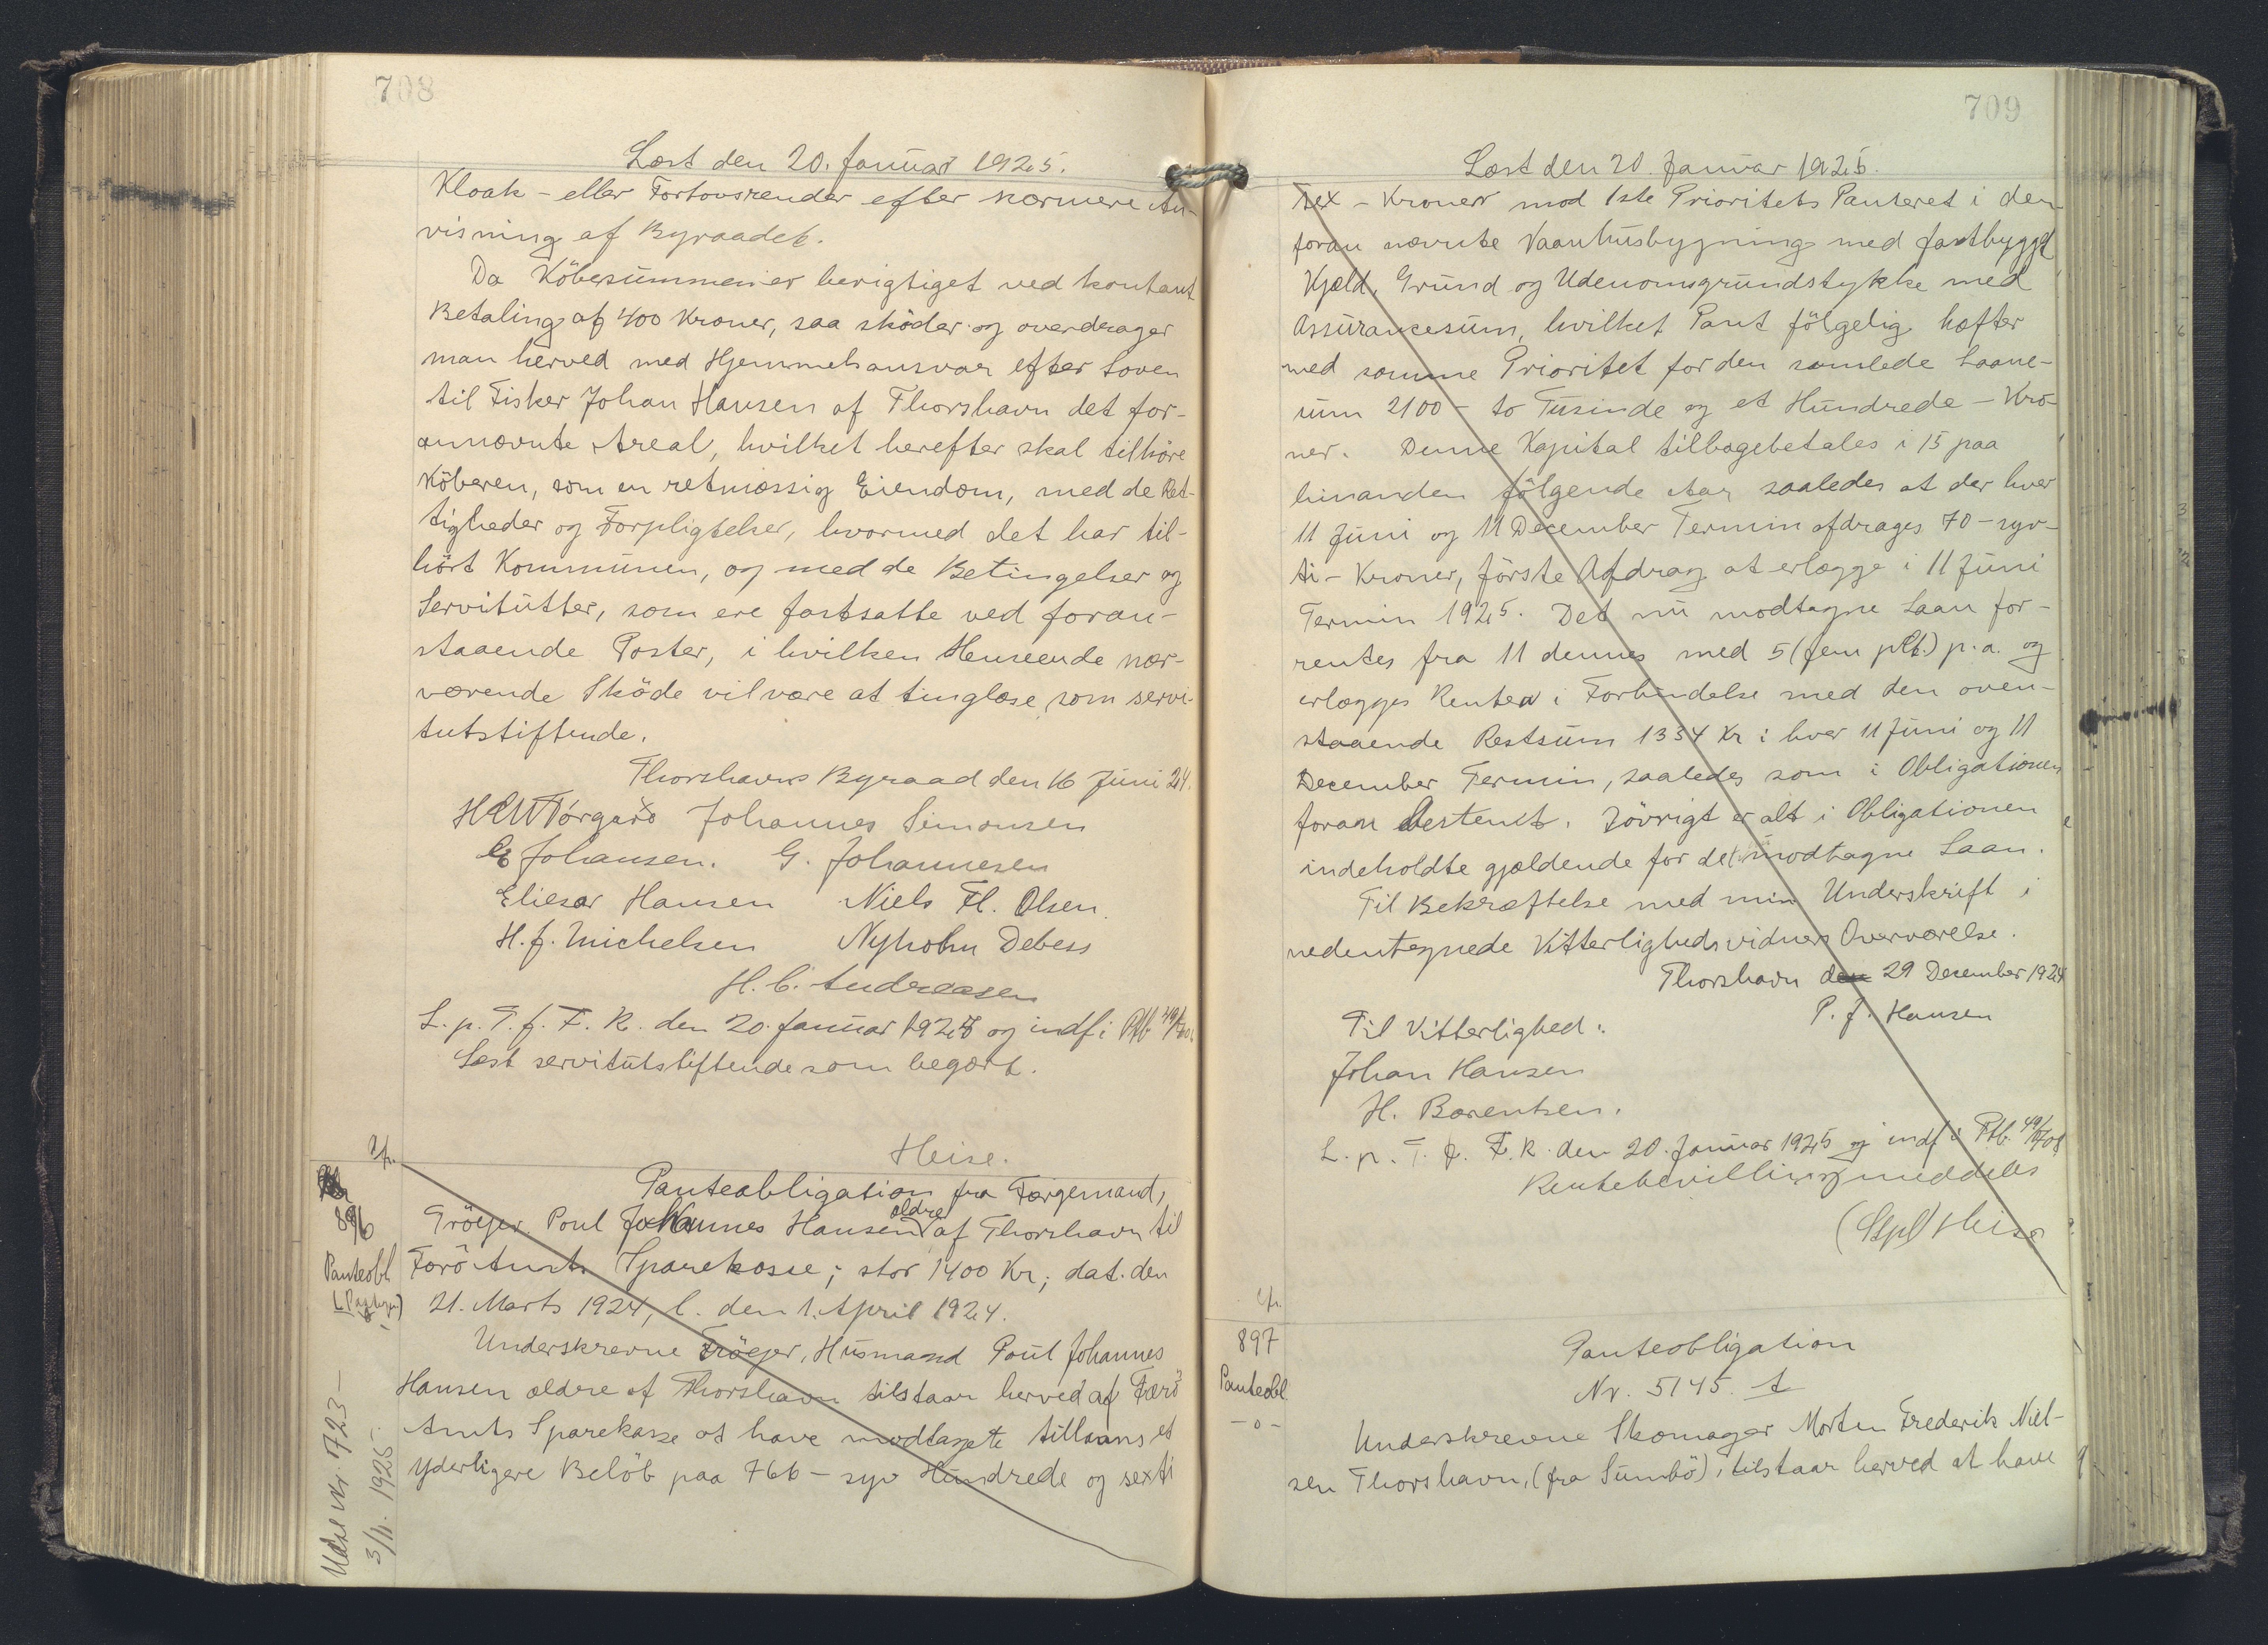 708
Læst den 20. Januar 1925.
Kloak- eller Fortovsrender efter nærmere An-
visning af Byraadet.
Da Köbesummen er berigtiget ved kontant
Betaling af 400 Kroner, saa sköder og overdrager
man herved med Hjemmelsansvar efter Loven
til Fisker Johan Hansen af Thorshavn det for-
annævnte Areal, hvilket herefter skal tilhöre
Köberen, som en retmæssig Eiendom, med de Ret-
tigheder og Forpligtelser, hvormed det har til-
hört Kommunen, og med de Betingelser og
Servitutter, som ere fastsatte ved foran-
staaende Poster, i hvilken Henseende nær-
værende Sköde vil være at tinglæse som servi-
tutstiftende.
Thorshavns Byraad den 16 Juni 24.
Johannes Simonsen
E Johansen. G. Johannesen
Eliesar Hansen Niels Fl. Olsen.
H. J. Michelsen Nyholm Debess
H. C. Andreasen
L. p. T. f. F. R. den 20. Januar 1925 og indf i Ptb 49/700.
Læst servitutstiftende som begært.
Heise.
896
Panteobl
Panteobligation fra Færgemand,
Tröejer Poul Johannes Hansen ældre af Thorshavn til
Færö Amts Sparekasse; stor 1400 Kr; dat. den
21. Marts 1924, l. den 1. April 1924.
Underskrevne Tröejer, Husmand Poul Johannes
Hansen ældre af Thorshavn tilstaar herved af Færö
Amts Sparekasse at have modtaget tillaans et
yderligere Belöb paa 766 - syv Hundrede og sexti
Udsl Nr. 723 -
3/11. 1925.
709
Læst den 20. Januar 1925.
sex - Kroner mod 1ste Prioritets Panteret i den
foran nævnte Vaanhusbygning med fastbygget
Kjæld, Grund og Udenomsgrundstykke med
Assurancesum, hvilket Pant fölgelig hæfter
med samme Prioritet for den samlede Laane-
sum 2100 - to Tusinde og et Hundrede - Kro-
ner. Denne Kapital tilbagebetales i 15 paa
hinanden fölgende Aar saaledes at der hver
11 Juni og 11 December Termin afdrages 70 - syv-
ti - Kroner, förste Afdrag at erlægge i 11 Juni
Termin 1925. Det nu modtagne Laan for-
rentes fra 11 dennes med 5 (fem pCt.) p.a. og
erlægges Renten i Forbindelse med den oven-
staaende Restsum 1334 Kr i hver 11 Juni og 11
December Termin, saaledes som i Obligationen
foran bestemt. Iövrigt er alt i Obligationen
indeholdte gjældende for det modtagne Laan.
Til Bekræftelse med min Underskrift i
nedentegnede Vitterlighedsvidners Overværelse.
Thorshavn den 29 December 1924
P. J. Hansen
Til Vitterlighed:
Johan Hansen
H. Barentsen.
L. p. T. f. F. R. den 20. Januar 1925 og indf i Ptb. 49/708
Rentebevilling meddeles
(Stpl) Heise
897
Panteobl
-o-
Panteobligation
Nr. 5145.
Underskrevne Skomager Morten Frederik Niel-
sen Thorshavn, (fra Sumbö), tilstaar herved at have